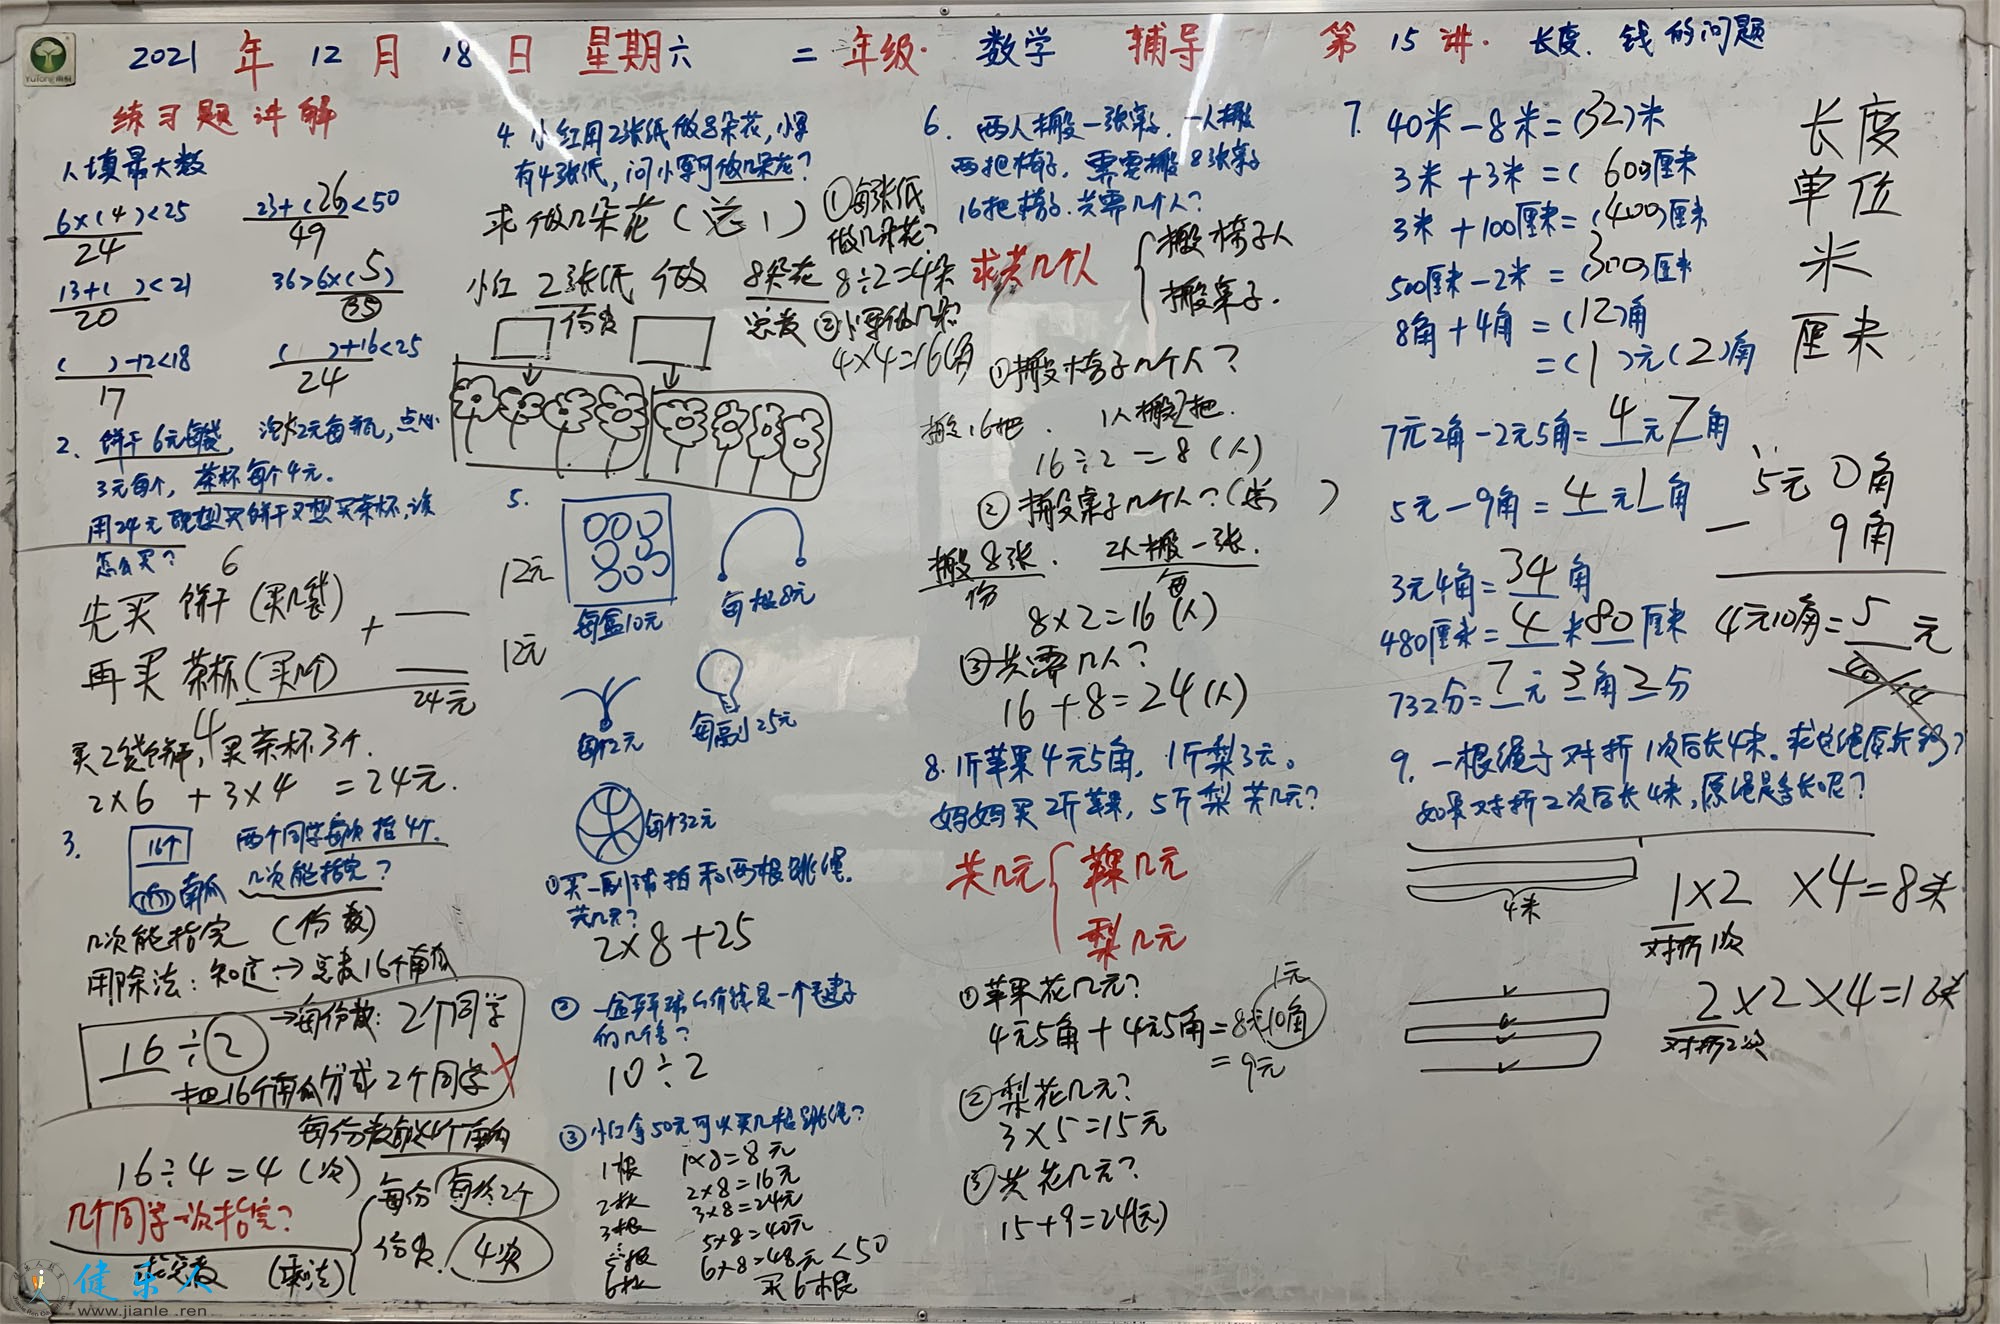 2021 年 12 月 18 日 星期六 二年级. 数学 辅导 第 15 讲. 长度. 钱的问题
练习题讲解
1.填最大数
6×(4)<25 23+(26)<50
24 49
13+( )<21 36>6×(5)
20 35
( )+2<18 ( )+16<25
17 24
2. 饼干6元每袋, 汽水2元每瓶, 点心
3元每个, 茶杯每个4元.
用24元既想买饼干又想买茶杯,该
怎么买?
6
先买 饼干 (买几袋) +
再买 茶杯(买几个)
24元
4
买2袋饼干, 买茶杯3个.
2×6 + 3×4 = 24元.
3. 16个 两个同学每次抬4个.
南瓜 几次能抬完?
几次能抬完 (份数)
用除法: 知道→总数16个南瓜
16÷2 →每份数: 2个同学
把16个南瓜分成2个同学 ×
每份数 4个南瓜
16÷4=4 (次)
几个同学一次抬完?
求总数 (乘法)
每份 每次2个
份数. 4次
4. 小红用2张纸做8朵花, 小军
有4张纸, 问小军可做几朵花?
求做几朵花 (总1) ①每张纸
做几朵花?
小红 2张纸 做 8朵花 8÷2=4朵
份数 总数 ②小军做几朵?
4×4=16(朵)
5.
12元
每盒10元 每根8元
12元
每个2元 每副25元
每个32元
①买一副球拍和两根跳绳.
共几元?
2×8+25
② 一盒乒乓球的价钱是一个毽子
的几倍?
10÷2
③小红拿50元可以买几根跳绳?
1根 1×8=8元
2根 2×8=16元
3根 3×8=24元
5根 5×8=40元
6根 6×8=48元<50
买6根
6. 两人搬一张桌子. 一人搬
两把椅子, 需要搬8张桌子
16把椅子. 共需几个人?
求共几个人 搬椅子人
搬桌子.
①搬椅子几个人?
搬16把. 1人搬2把.
16÷2=8(人)
②搬桌子几个人?(总 )
搬8张. 2人搬一张.
份 每
8×2=16(人)
③共需几人?
16+8=24(人)
8. 1斤苹果4元5角, 1斤梨3元。
妈妈买2斤苹果, 5斤梨共几元?
共几元 苹果几元
梨几元
①苹果花几元? 1元
4元5角+4元5角=8元10角
=9元
②梨花几元?
3×5=15元
③共花几元?
15+9=24(元)
7. 40米-8米=(32)米
3米+3米=(600)厘米
3米+100厘米=(400)厘米
500厘米-2米=(300)厘米
8角+4角=(12)角
=(1)元(2)角
7元2角-2元5角=4元7角
5元-9角=4元1角
3元4角=34角
480厘米=4米80厘米
732分=7元3角2分
长度
单位
米
厘米
5元0角
- 9角
4元10角=5元
9. 一根绳子对折1次后长4米。求这绳原长多少?
如果对折2次后长4米, 原绳是多长呢?
4米
1×2 ×4=8米
对折1次
2×2×4=16米
对折2次
健乐人
www.jianle.ren